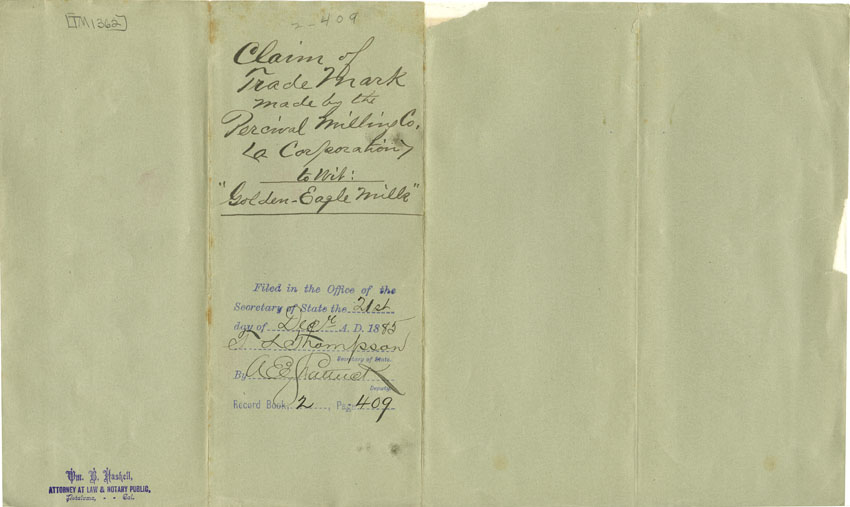 [TM 1362]
2-409
Claim of
Trade Mark
made by the
Percival Milling Co.
(a Corporation)
to Wit:
"Golden-Eagle Mills"
Filed in the Office of the
Secretary of State the 21st
day of Decr A. D. 1885
T L Thompson
Secretary of State.
By A E
Deputy.
Record Book, 2, Page 409
Wm. B. Haskell,
ATTORNEY AT LAW & NOTARY PUBLIC,
Petaluma, - - Cal.